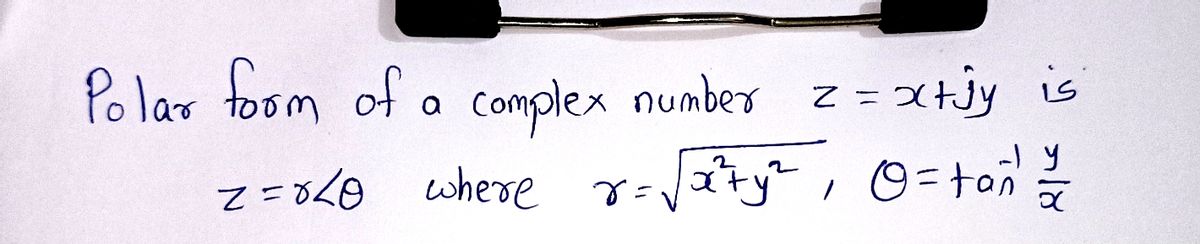 Polar form of a complex number z = x+jy is
z = r∠θ where r = √(x²+y²) , θ = tan⁻¹ y/x